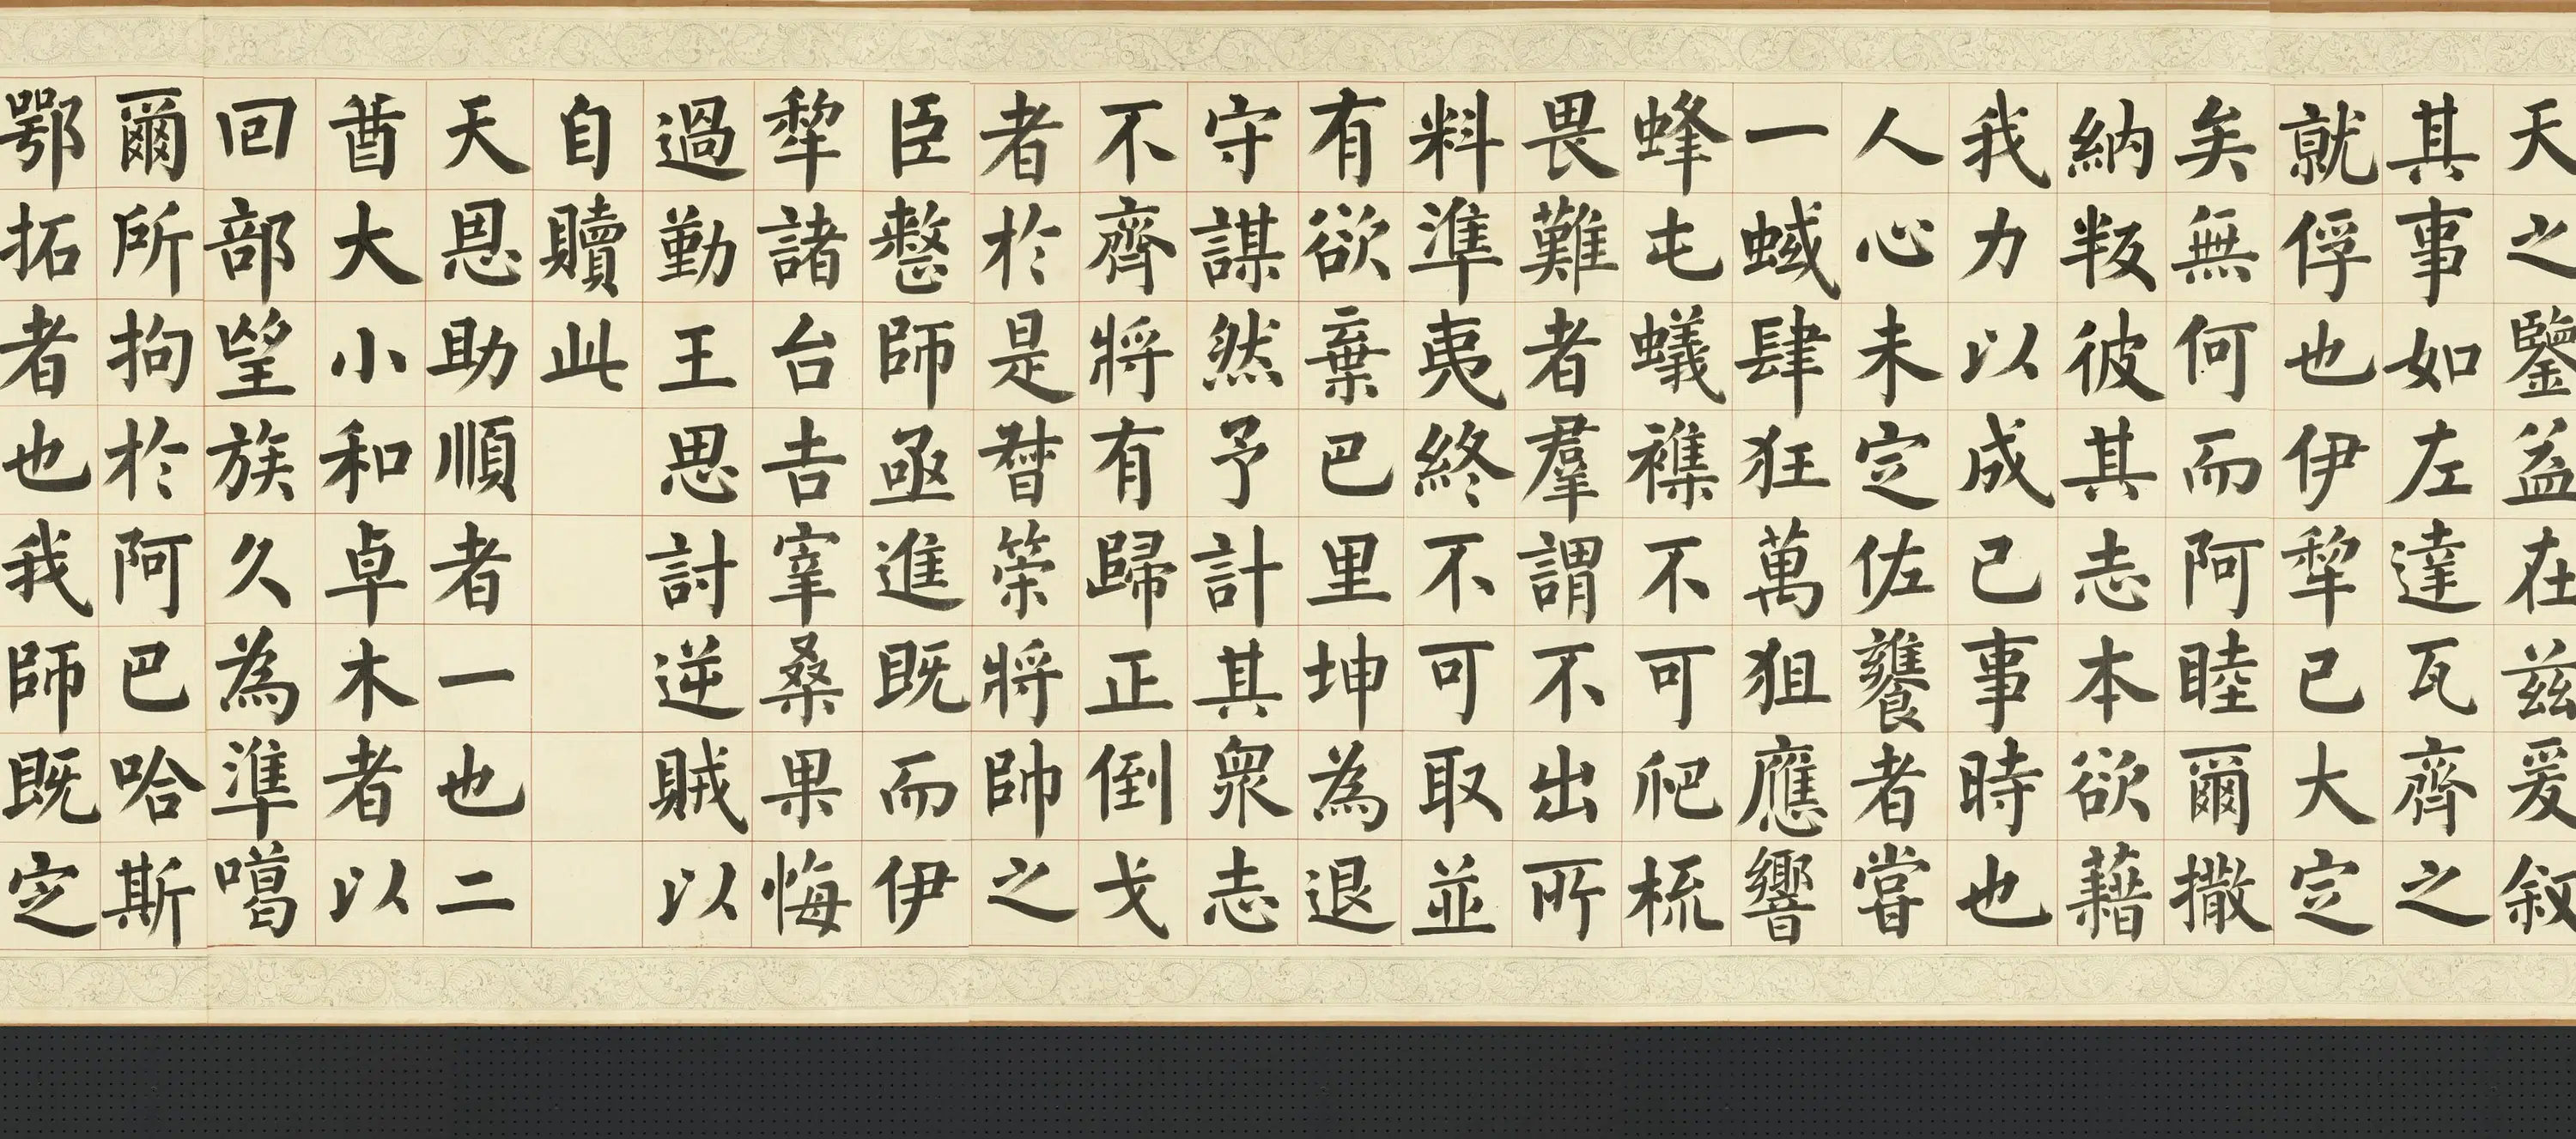 天之鑒益在茲爰叙
其事如左達瓦齊之
就俘也伊犂已大定
矣無何而阿睦爾撒
納叛彼其志本欲藉
我力以成已事時也
人心未定佐饔者嘗
一蜮肆狂萬狙應響
蜂屯蟻襍不可爬梳
畏難者羣謂不出所
料準夷終不可取並
有欲棄巴里坤為退
守謀然予計其衆志
不齊將有歸正倒戈
者於是督策將帥之
臣整師亟進既而伊
犂諸台吉宰桑果悔
過勤王思討逆賊以
自贖此
天恩助順者一也二
酋大小和卓木者以
回部望族久為準噶
爾所拘於阿巴哈斯
鄂拓者也我師既定